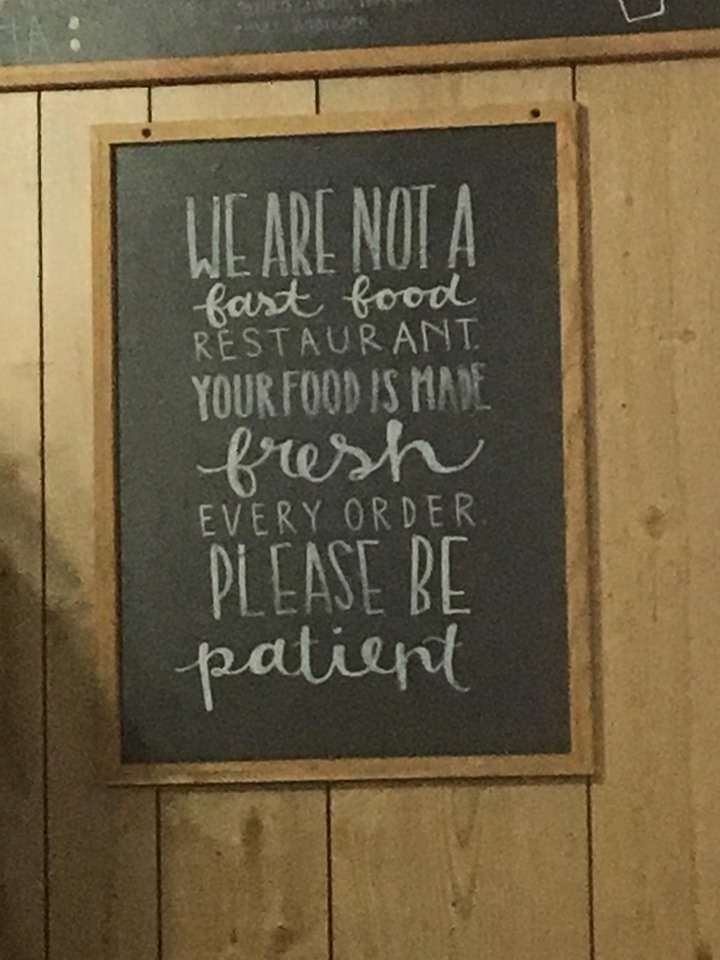 WE ARE NOT A
fast food
RESTAURANT.
YOUR FOOD IS MADE
fresh
EVERY ORDER.
PLEASE BE
patient